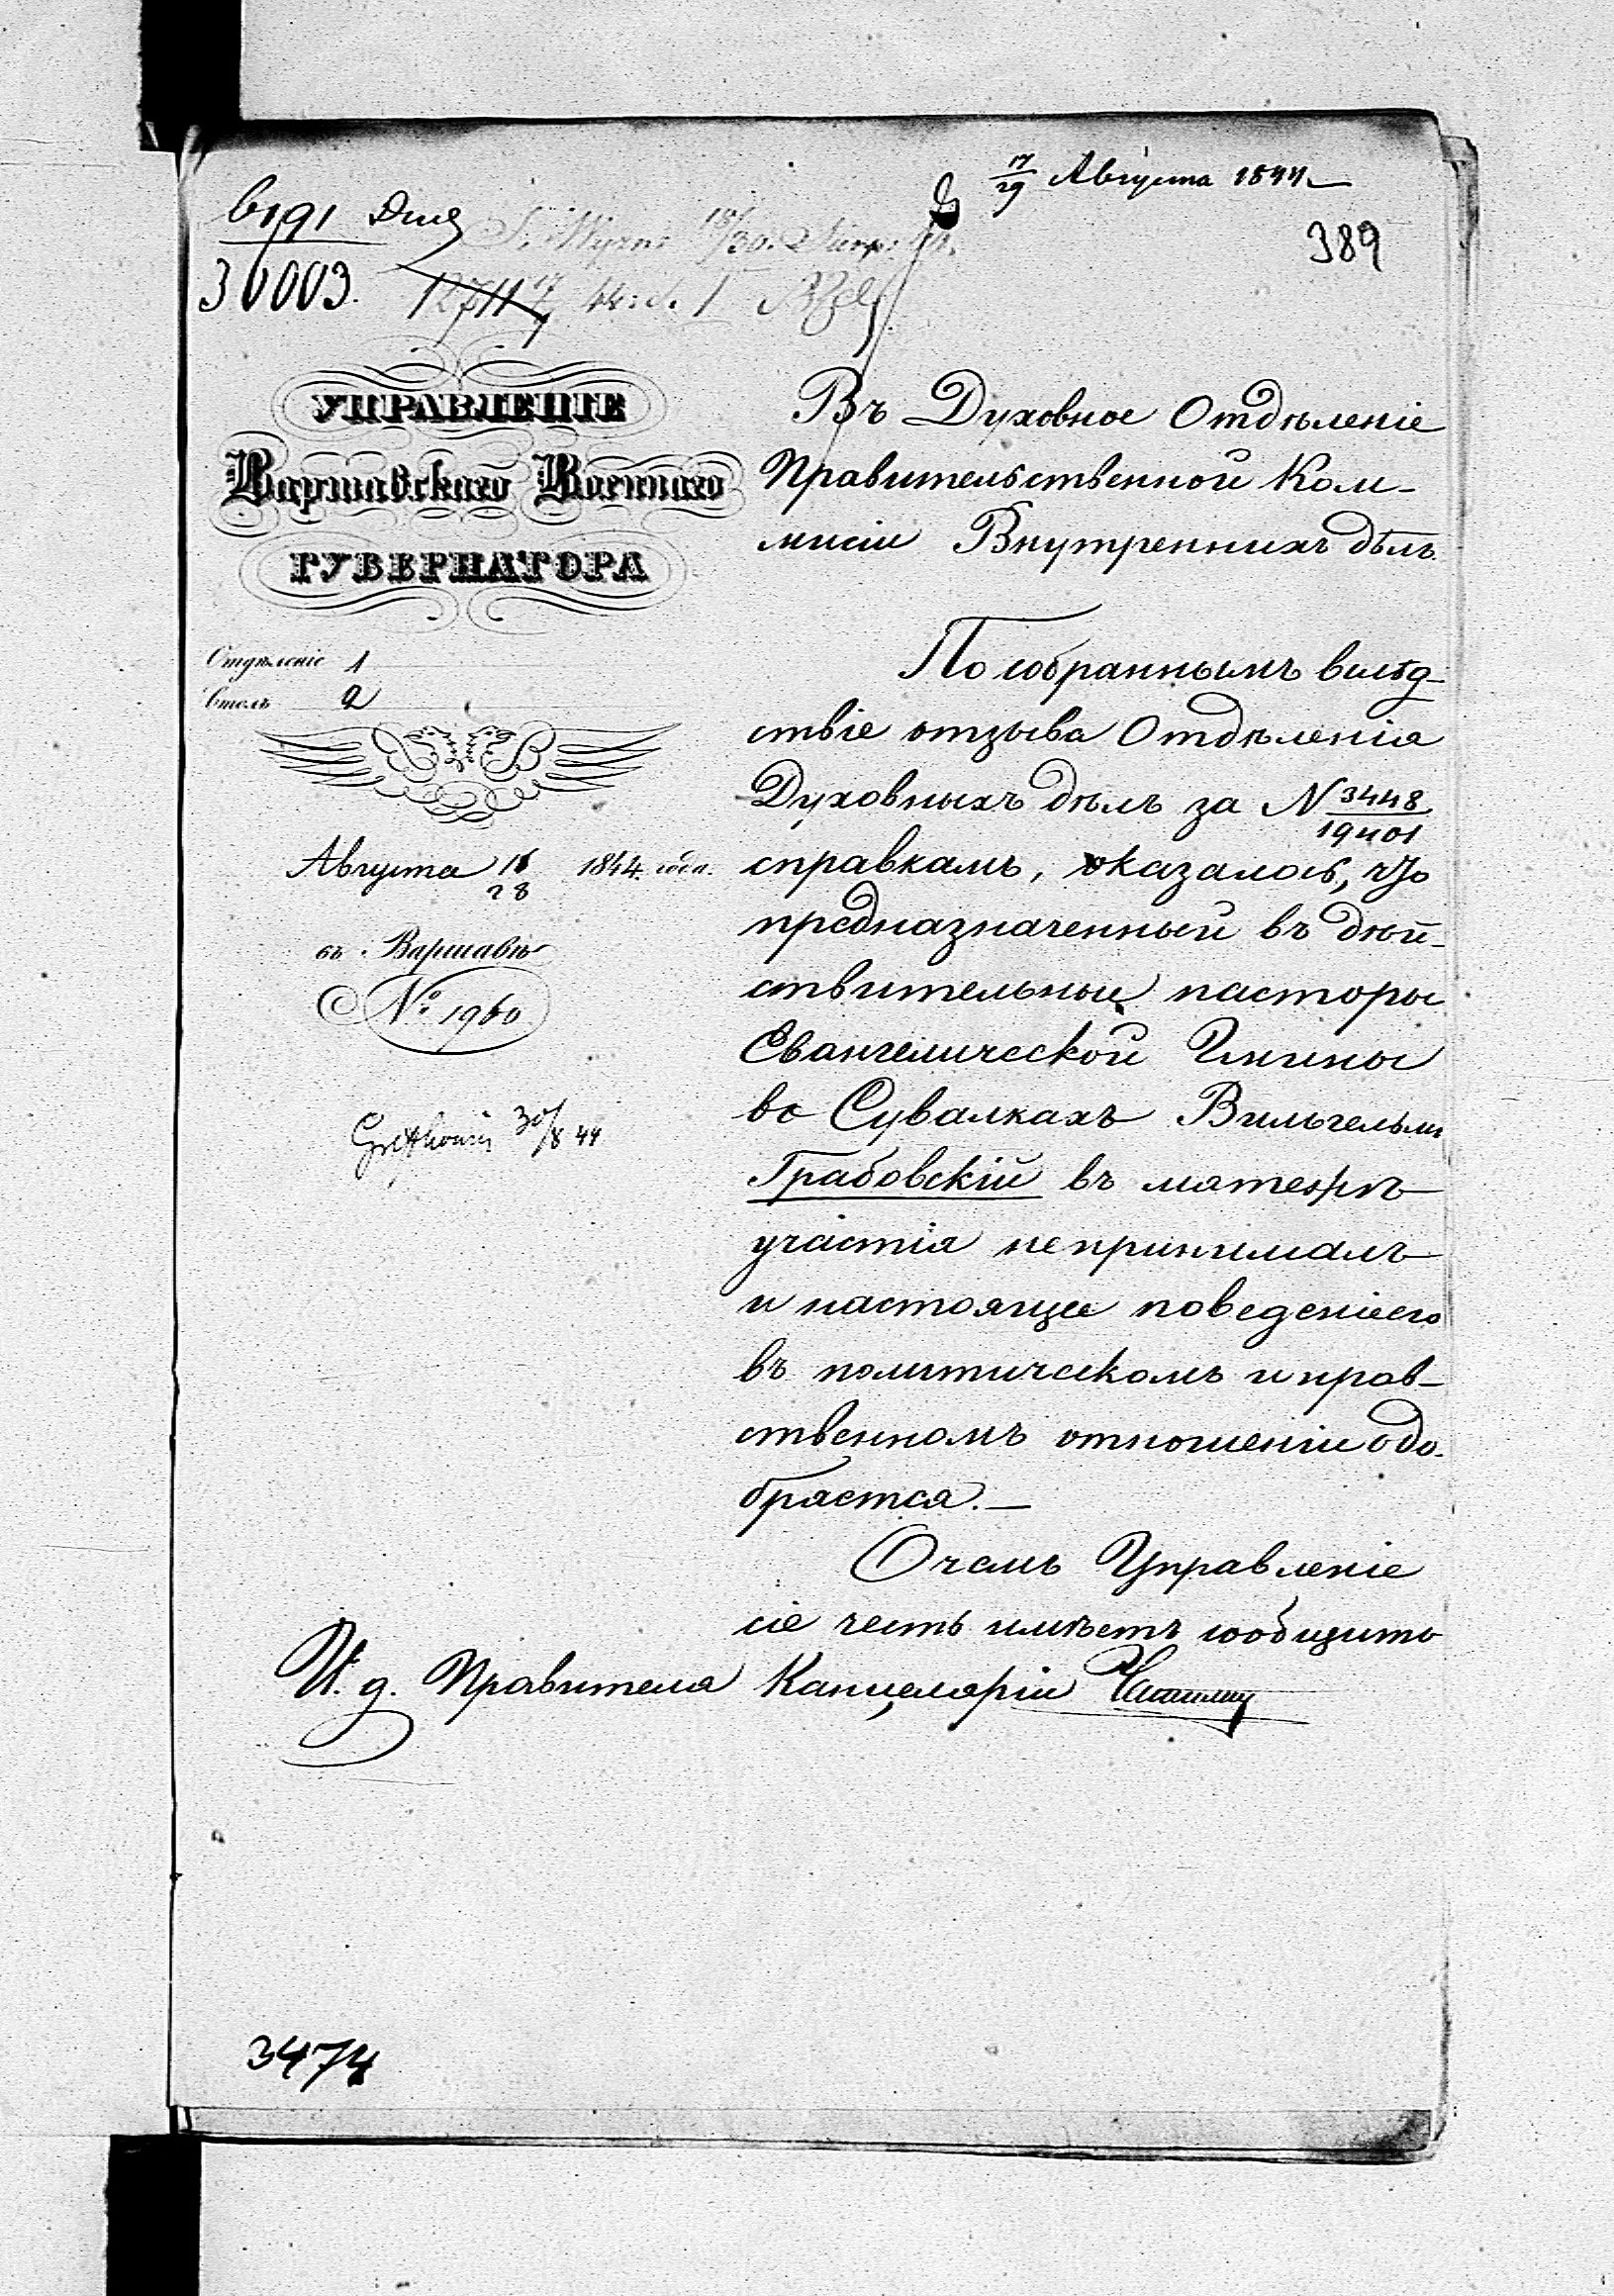 17/29 Августа 1844
389
6191 Dnia
30003.
12711
УПРАВЛЕНІЕ
Варшавскаго Военнаго
ГУБЕРНАТОРА
Отдѣленіе 1
Столъ 2
Августа 16/28 1844 года.
въ Варшавѣ
№ 1960
30/8 44
Въ Духовное Отдѣленіе
Правительственной Ком-
мисіи Внутреннихъ дѣлъ.
По собраннымъ вслѣд-
ствіе отзыва Отдѣленія
Духовныхъ дѣлъ за N 3448/19401
справкамъ, оказалось, что
предназначенный въ дѣй-
ствительные пасторы
Евангелической Гмины
въ Сувалкахъ Вильгельмъ
Грабовскій въ мятежѣ
участія не принималъ
и настоящее поведеніе его
въ политическомъ и нрав-
ственномъ отношеніи одо-
бряется.—
О чемъ Управленіе
сіе честь имѣетъ сообщить
И. д. Правителя Канцеляріи
3474